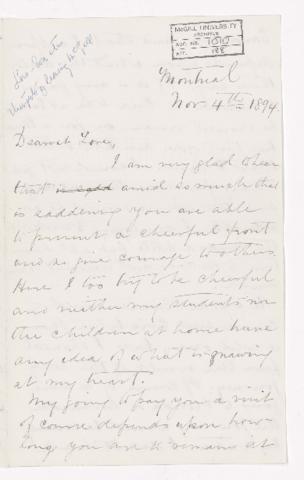 McGILL UNIVERSITY
ARCHIVES
ACC. NO. 1510
REF. 188
Montreal
Nov 4th 1894
Dearest Love,
I am very glad to hear
that amid so much that
is saddening you are able
to present a cheerful front
and so give courage to others.
Here I too try to be cheerful
and neither my students nor
the children at home have
any idea of what is gnawing
at my heart.
My going to pay you a visit
of course depends upon how
long you are to remain at